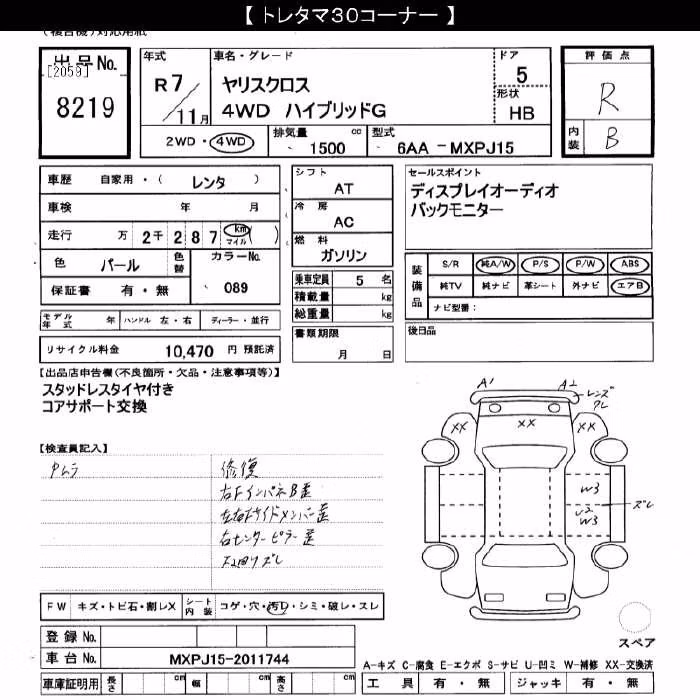 【 トレタマ30コーナー 】
出品No.
[2059]
8219
年式
R7/11月
車名・グレード
ヤリスクロス
4WD ハイブリッドG
ドア
5
形状
HB
評価点
R
内装
B
2WD・4WD
排気量 1500 cc
型式 6AA-MXPJ15
車歴 自家用・( レンタ )
車検 年 月
走行 万 2千 2 8 7 km マイル ( )
色 パール
色替
カラーNo.
089
保証書 有・無
モデル年式 年
ハンドル 左・右
ディーラー・並行
リサイクル料金 10,470 円 預託済
シフト
AT
冷房
AC
燃料
ガソリン
乗車定員 5 名
積載量 kg
総重量 kg
書類期限
月 日
セールスポイント
ディスプレイオーディオ
バックモニター
装備品
S/R 純A/W P/S P/W ABS
純TV 純ナビ 革シート 外ナビ エアB
ナビ型番:
後日品
【出品店申告欄(不良箇所・欠品・注意事項等)】
スタッドレスタイヤ付き
コアサポート交換
【検査員記入】
修復
右Fインパネ B歪
左右Fサイドメンバー歪
右センターピラー歪
ズレ
A1
A1
レンズ
XX
XX
XX
W3
U2
W3
ズレ
スペア
FW キズ・トビ石・割レX
シート内装 コゲ・穴・汚レ・シミ・破レ・スレ
登録No.
車台No. MXPJ15-2011744
車庫証明用 長さ cm 幅 cm 高さ cm
A-キズ C-腐食 E-エクボ S-サビ U-凹ミ W-補修 XX-交換済
工具 有・無 ジャッキ 有・無